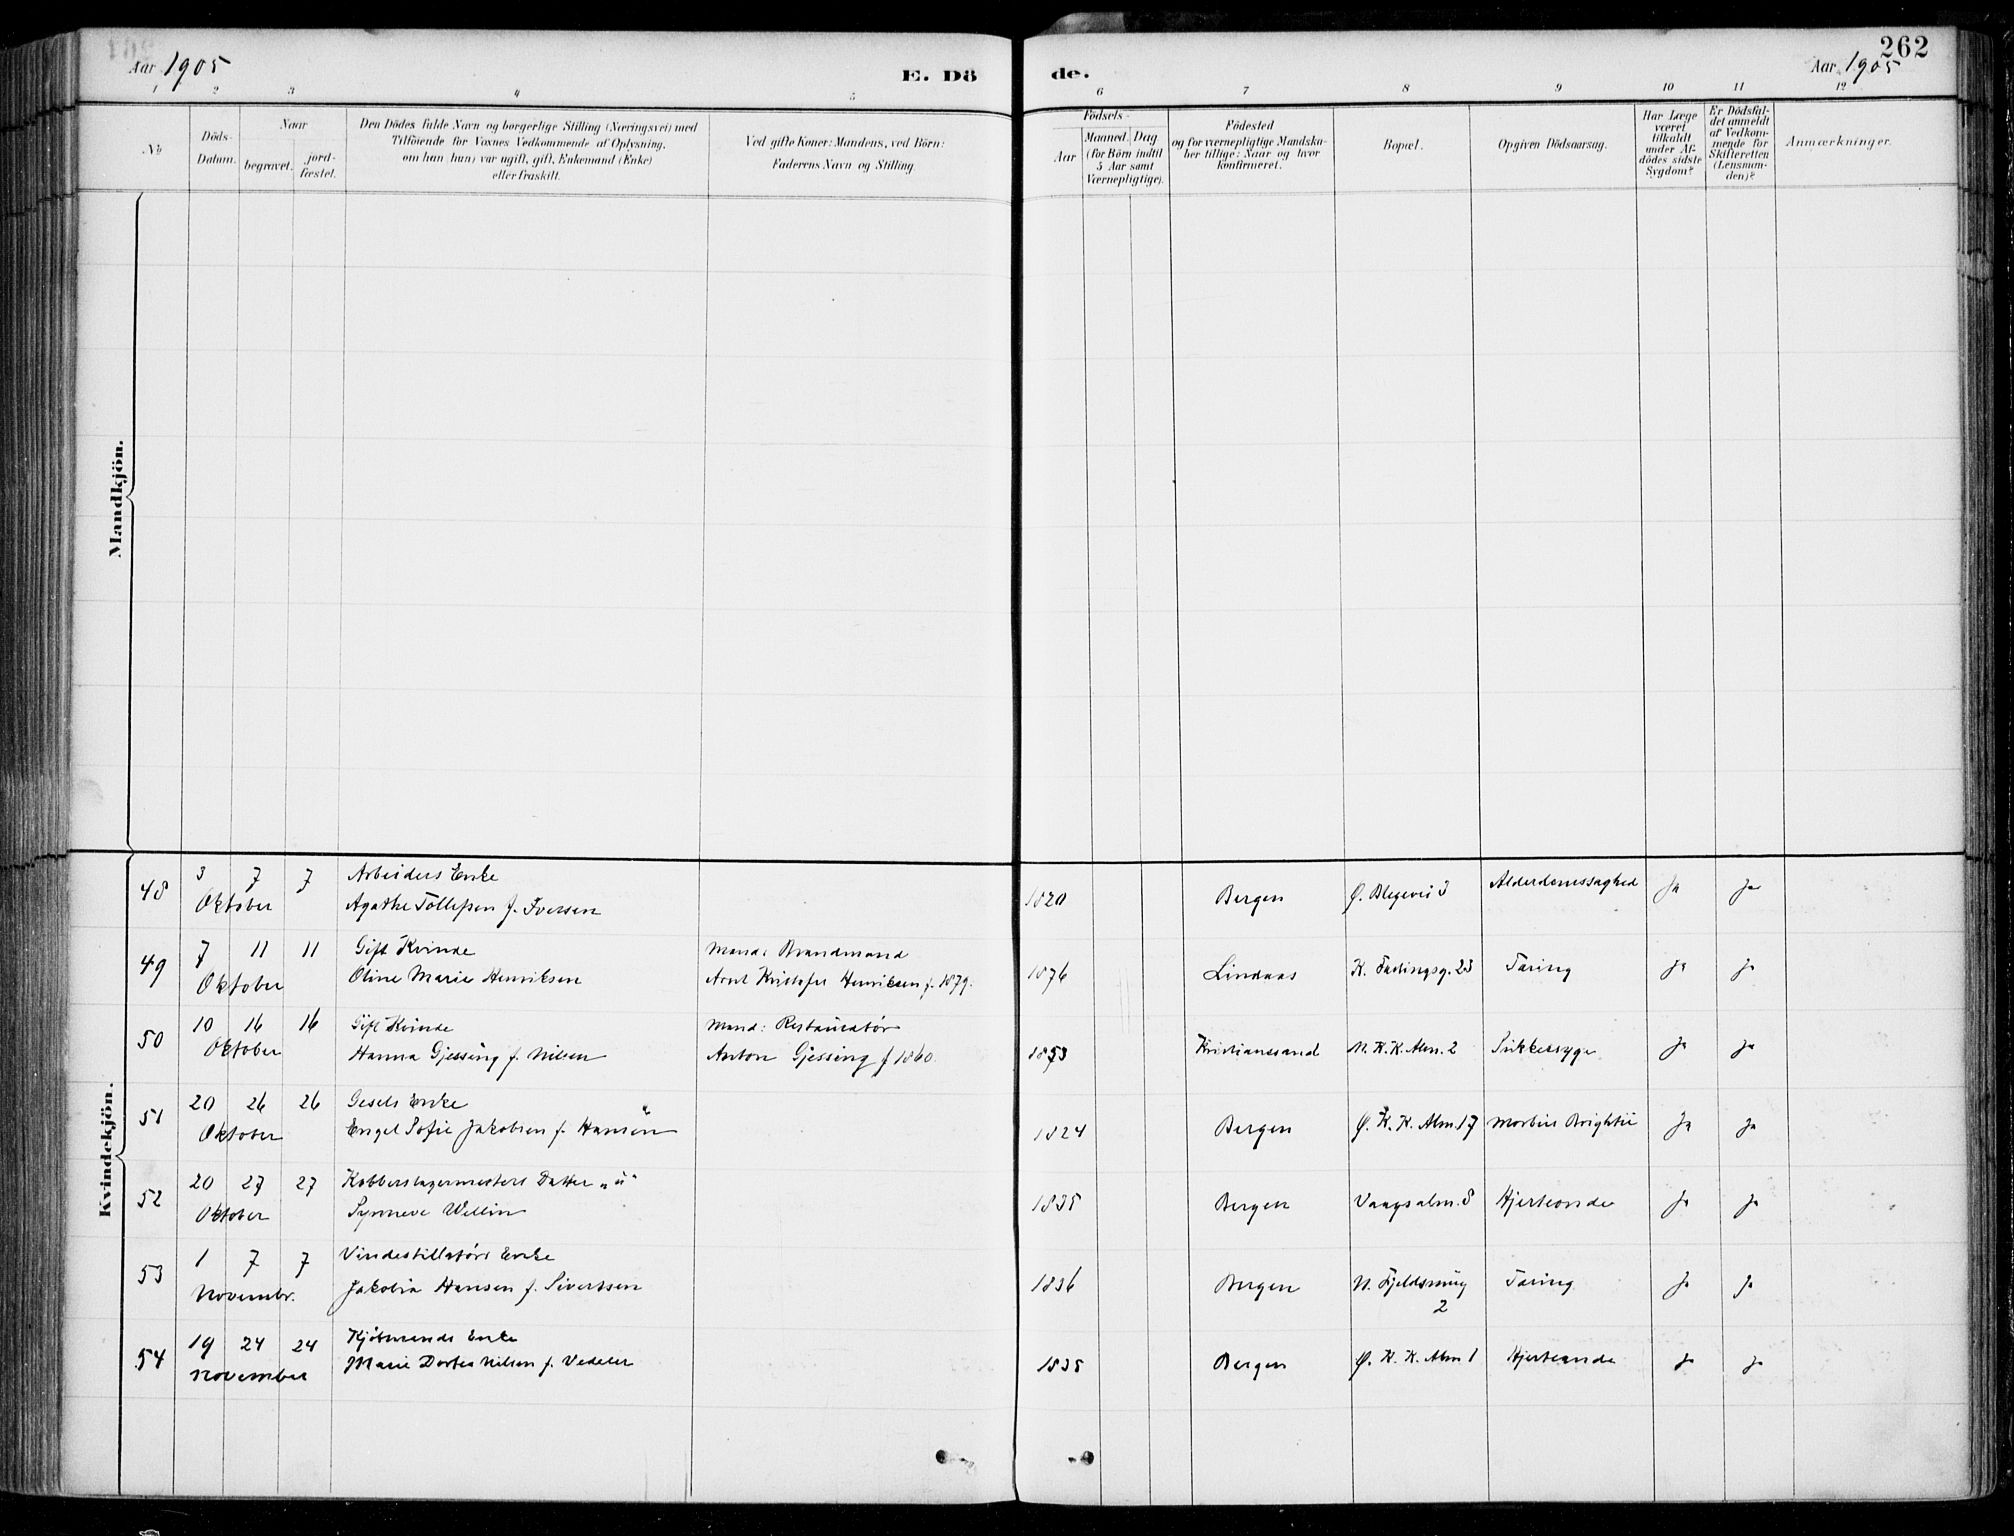 262
Aar 1905
E. Dö
de.
Aar 1905
1 2 3 4 5 6 7 8 9 10 11 12
No
Döds-Datum.
Naar
begravet.
jord-fæstet.
Den Dödes fulde Navn og borgerlige Stilling (Næringsvei) med
Tilföiende for Voxnes Vedkommende af Oplysning,
om han (hun) var ugift, gift, Enkemand (Enke)
eller fraskilt.
Ved gifte Koner: Mandens, ved Börn:
Faderens Navn og Stilling.
Födsels-
Aar
Maaned.
Dag
(for Börn indtil
5 Aar samt
Værnepligtige).
Födested
og for værnepligtige Mandska-
ber tillige: Naar og hvor
konfirmeret.
Bopæl.
Opgiven Dödsaarsag.
Har Læge
været
tilkaldt
under Af-
dödes sidste
Sygdom?
Er Dödsfal-
det anmeldt
af Vedkom-
mende for
Skifteretten
(Lensman-
den)?
Anmærkninger.
Mandkjön.
Kvindekjön.
48 3 7 7 Arbeiders Enke
Oktober Agathe Tollefsen f. Iversen 1820 Bergen Ø. Blegevei 3 Alderdomssvaghed Ja Ja
49 7 11 11 Gift Kvinde Mand: Brandmand
Oktober Oline Marie Henriksen Arnt Kristofer Henriksen f. 1879. 1876 Lindaas K. Fastingsg. 23 Tæring Ja Ja
50 10 16 16 Gift Kvinde Mand: Restauratør
Oktober Hanna Gjessing f. Nilsen Anton Gjessing f 1860. 1853 Kristianssand N. K. K. Alm. 2 Sukkersyge Ja Ja
51 20 26 26 Gesels Enke
Oktober Engel Sofie Jakobsen f. Hansen 1824 Bergen Ø. K. K. Alm. 17 Morbus Brightii Ja Ja
52 20 27 27 Kobberslagermesters Datter "u"
Oktober Synneve Wellin 1835 Bergen Vaagsalm. 8 Hjerteonde Ja Ja
53 1 7 7 Vindestillatørs Enke
Novembr. Jakobia Hansen f. Sivertsen 1836 Bergen N. Fjeldsmug
2 Tæring Ja Ja
54 19 24 24 Kjøbmands Enke
November Marie Dortea Nilsen f. Vedeler 1835 Bergen Ø. K. K. Alm 1 Hjerteonde Ja Ja